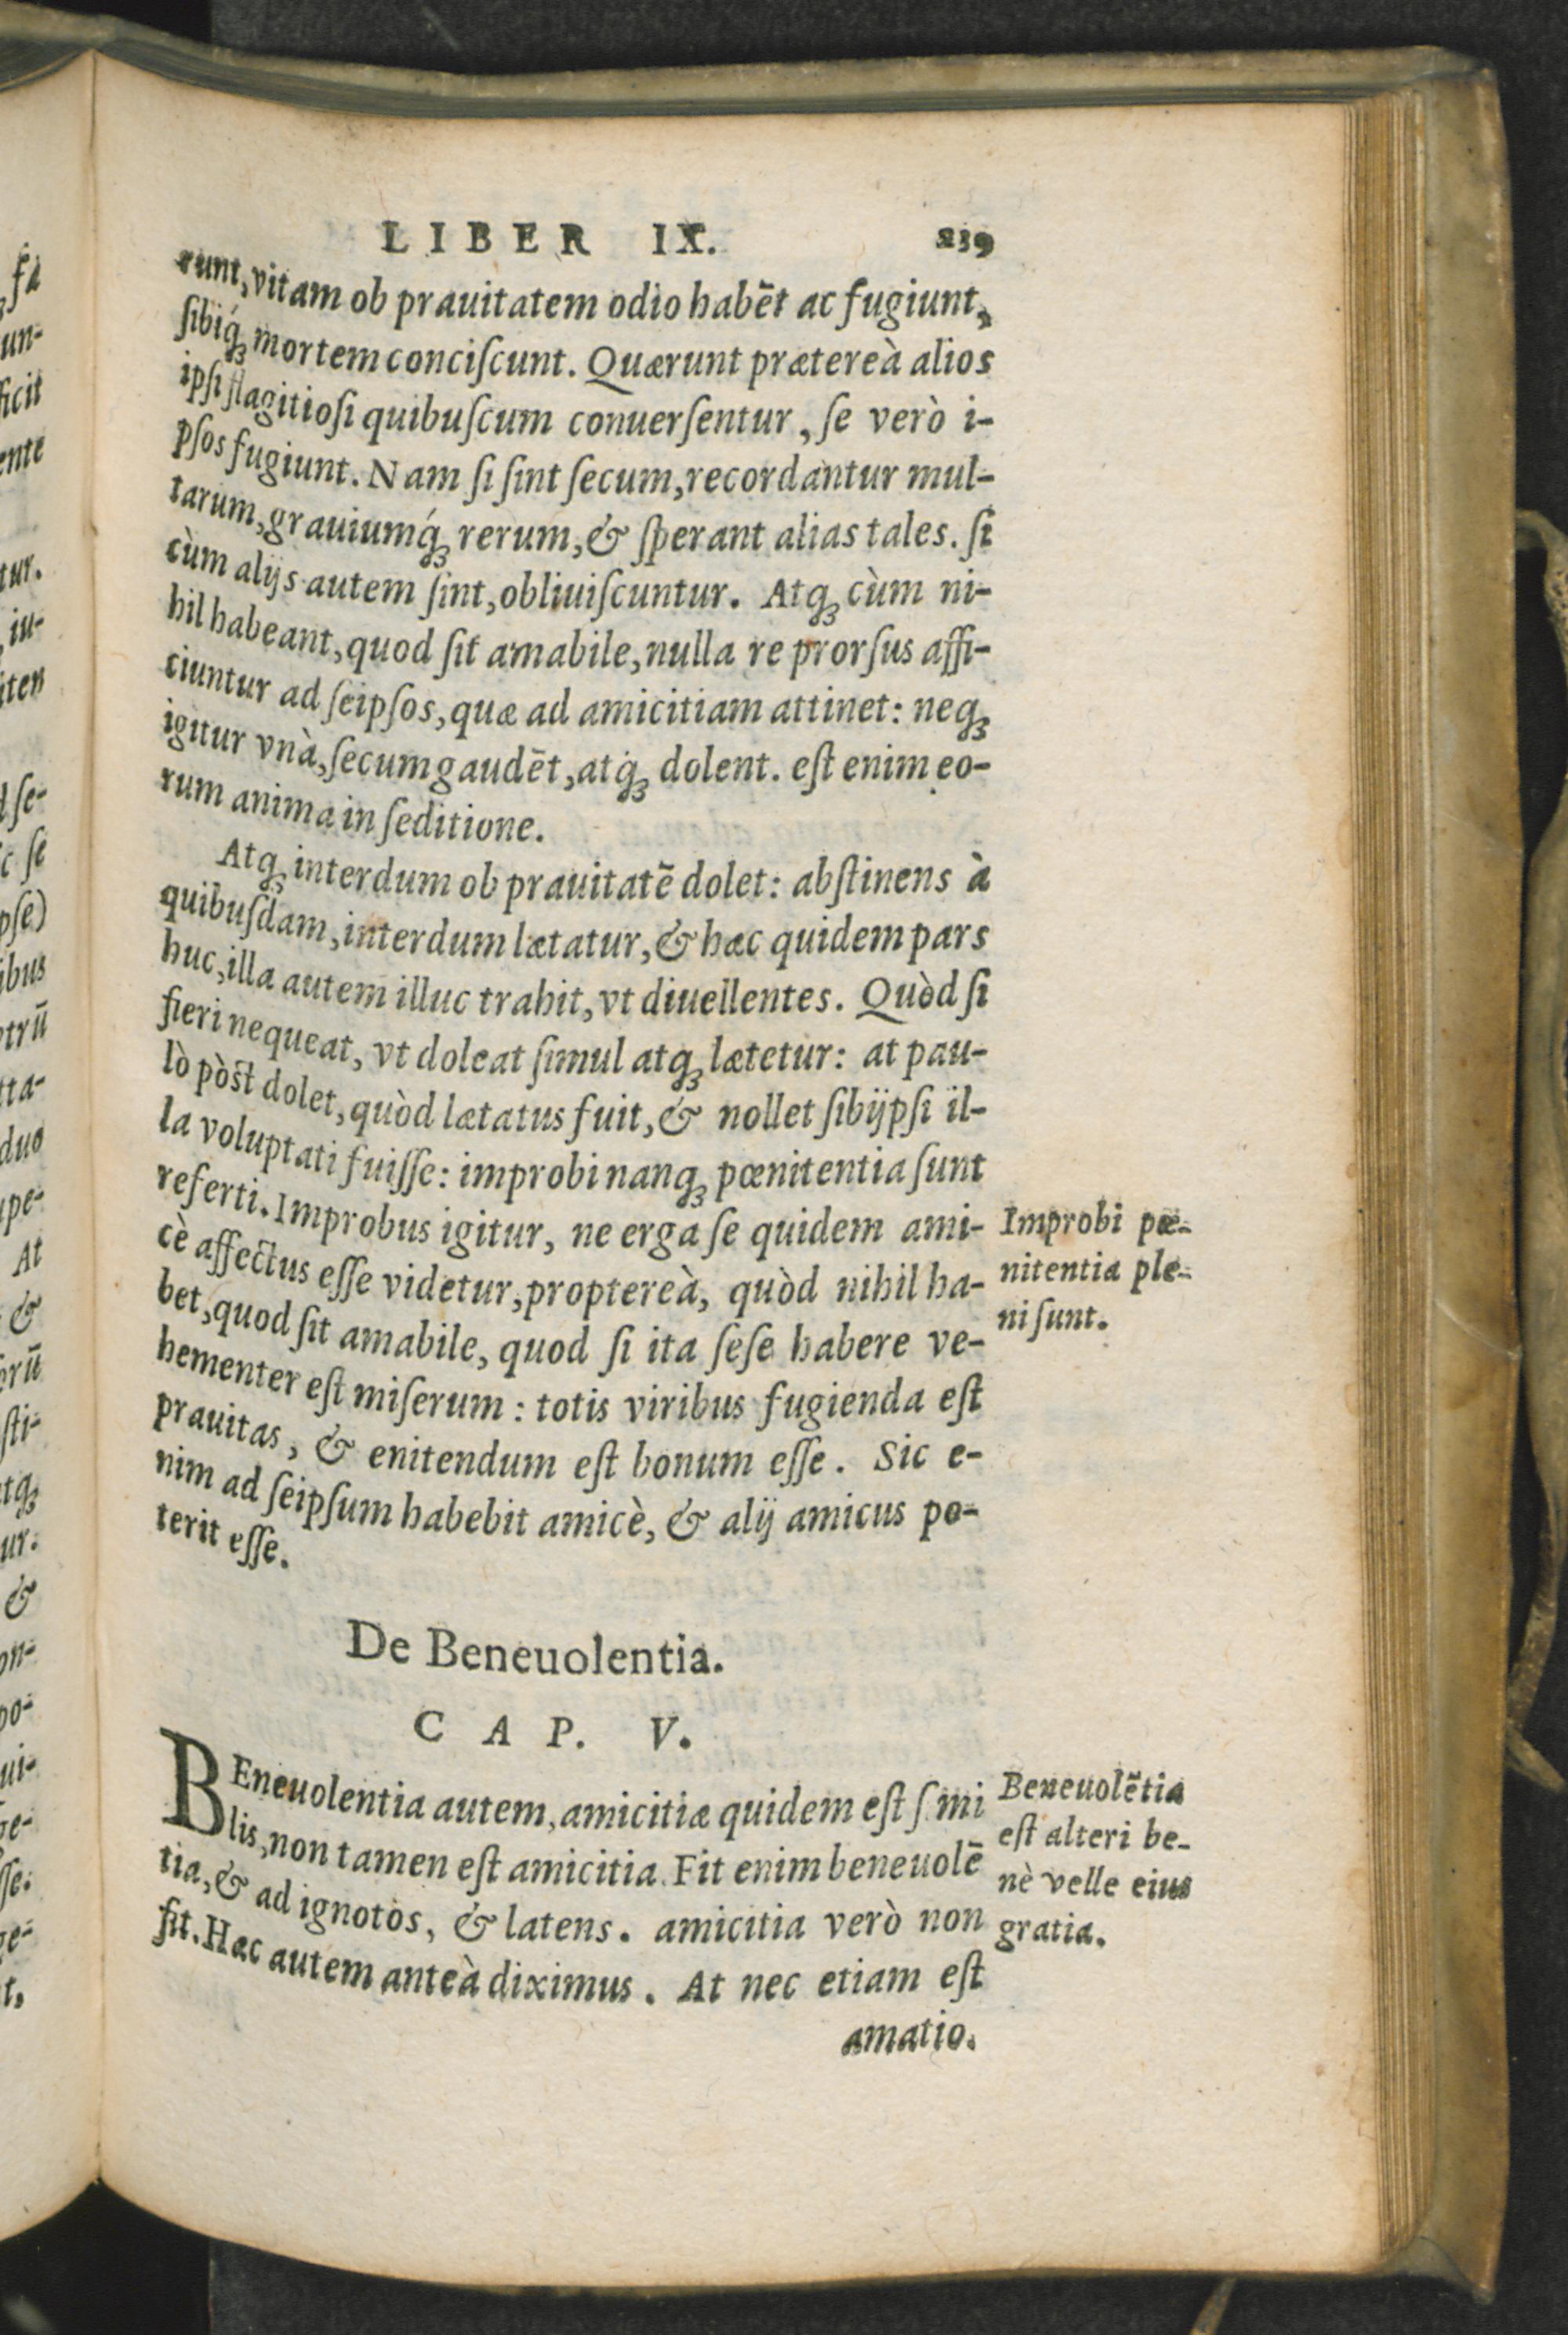 LIBER IX. 239
runt, vitam ob prauitatem odio habēt ac fugiunt,
ſibiq́; mortem conciſcunt. Quærunt prætereà alios
ipſi flagitioſi quibuſcum conuerſentur, ſe verò i-
pſos fugiunt. Nam ſi ſint ſecum, recordantur mul-
tarum, grauiumq́; rerum, & ſperant alias tales. ſi
cùm alijs autem ſint, obliuiſcuntur. Atq; cùm ni-
hil habeant, quod ſit amabile, nulla re prorſus affi-
ciuntur ad ſeipſos, quæ ad amicitiam attinet: neq;
igitur vnà, ſecum gaudēt, atq́; dolent. eſt enim eo-
rum anima in ſeditione.
Atq; interdum ob prauitatē dolet: abſtinens à
quibuſdam, interdum lætatur, & hæc quidem pars
huc, illa autem illuc trahit, vt diuellentes. Quòd ſi
fieri nequeat, vt doleat ſimul atq; lætetur: at pau-
lò pòſt dolet, quòd lætatus fuit, & nollet ſibijpſi il-
la voluptati fuiſſe: improbi nanq; pœnitentia ſunt
referti. Improbus igitur, ne erga ſe quidem ami-
cè affectus eſſe videtur, proptereà, quòd nihil ha-
bet, quod ſit amabile, quod ſi ita ſeſe habere ve-
hementer eſt miſerum: totis viribus fugienda eſt
prauitas, & enitendum eſt bonum eſſe. Sic e-
nim ad ſeipſum habebit amicè, & alij amicus po-
terit eſſe.
Improbi pœ-
nitentia ple-
ni ſunt.
De Beneuolentia.
CAP. V.
BEneuolentia autem, amicitiæ quidem eſt ſimi
lis, non tamen eſt amicitia. Fit enim beneuolē
tia, & ad ignotos, & latens. amicitia verò non
fit. Hæc autem anteà diximus. At nec etiam eſt
amatio.
Beneuolētia
eſt alteri be-
nè velle eius
gratia.